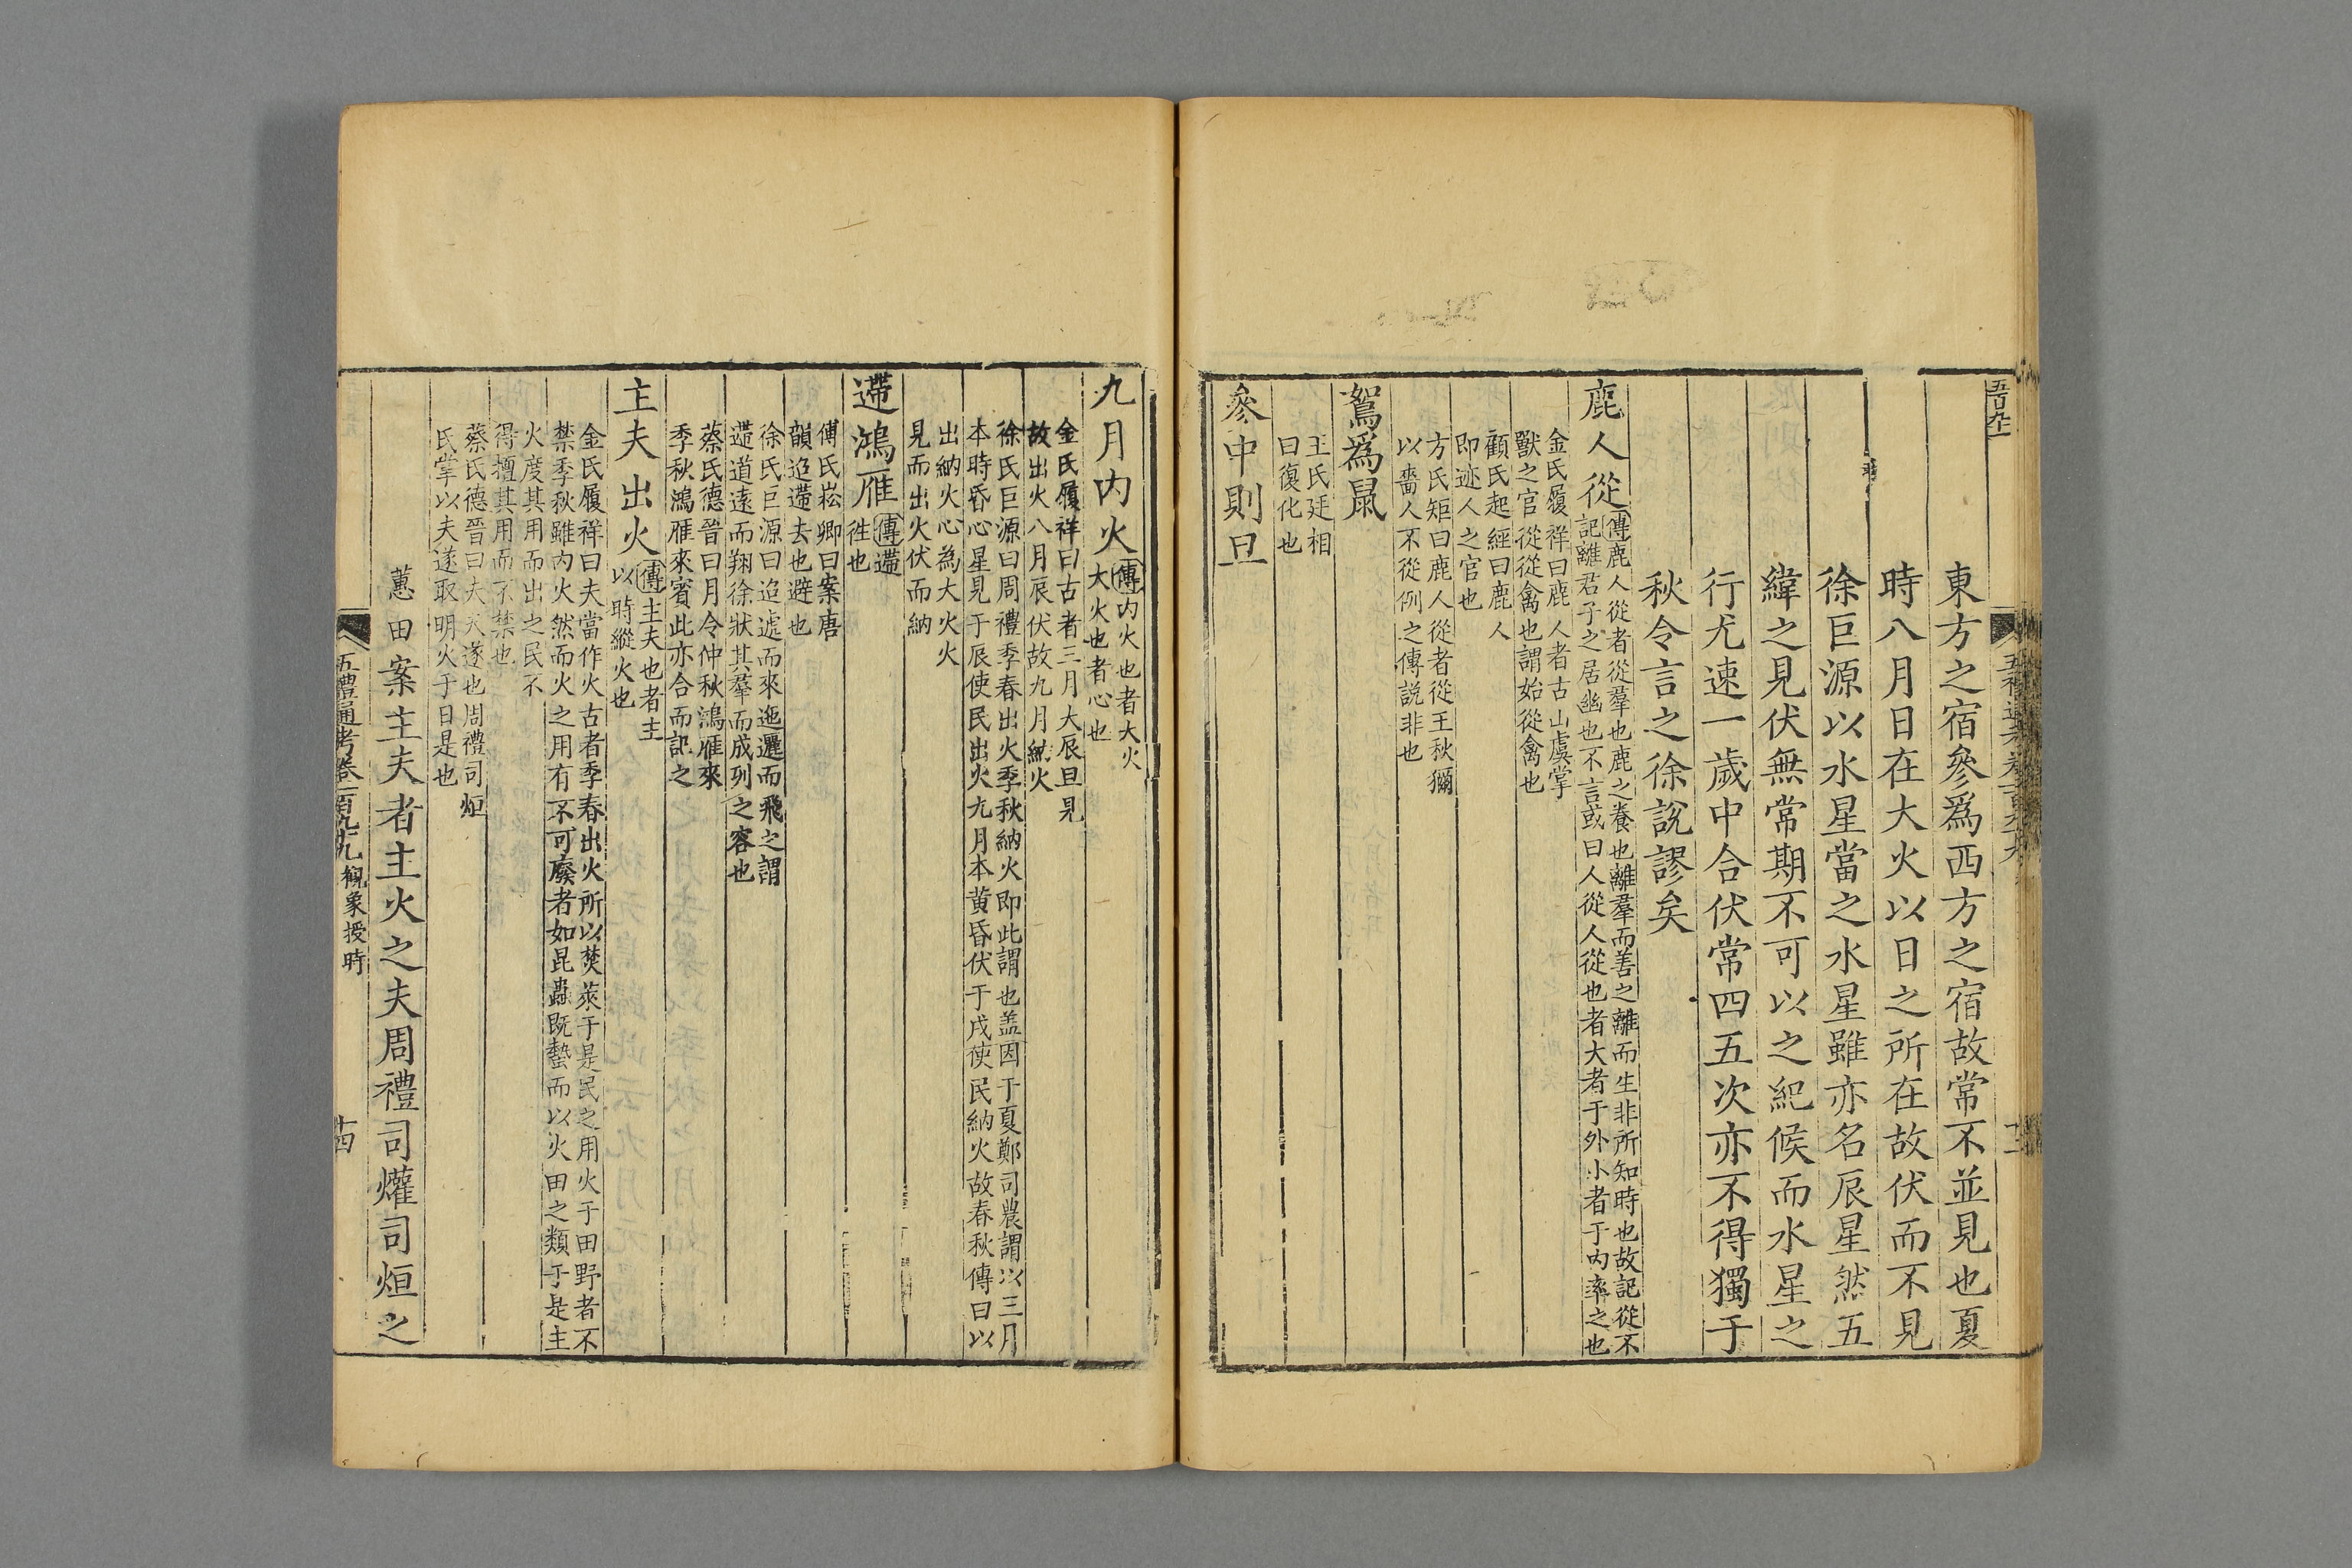 東方之宿參爲西方之宿故常不並見也夏
時八月日在大火以日之所在故伏而不見
徐巨源以水星當之水星雖亦名辰星然五
緯之見伏無常期不可以之紀候而水星之
行尤速一歲中合伏常四五次亦不得獨于
秋令言之徐說謬矣
鹿人從
傳鹿人從者從羣也鹿之養也離羣而善之離而生非所知時也故記從不
記離君子之居幽也不言或曰人從人從也者大者于外小者于內率之也
金氏履祥曰鹿人者古山虞掌
獸之官從從禽也謂始從禽也
顧氏起經曰鹿人
即迹人之官也
方氏矩曰鹿人從者從王秋獮
以嗇人不從例之傳說非也
鴽爲鼠
王氏廷相
曰復化也
參中則旦
九月內火
傳內火也者大火
大火也者心也
金氏履祥曰古者三月大辰旦見
故出火八月辰伏故九月納火
徐氏巨源曰周禮季春出火季秋納火即此謂也盖因于夏鄭司農謂以三月
本時昏心星見于辰使民出火九月本黄昏伏于戌使民納火故春秋傳曰以
出納火心為大火火
見而出火伏而納
遰鴻雁
傳遰
徃也
傅氏崧卿曰案唐
韻迨遰去也避也
徐氏巨源曰迨遽而來迤邐而飛之謂
遰道遠而翔徐狀其羣而成列之容也
蔡氏德晉曰月令仲秋鴻雁來
季秋鴻雁來賓此亦合而記之
主夫出火
傳主夫也者主
以時縱火也
金氏履祥曰夫當作火古者季春出火所以焚萊于是民之用火于田野者不
禁季秋雖內火然而火之用有不可廢者如昆蟲既蟄而以火田之類于是主
火度其用而出之民不
得擅其用而不禁也
蔡氏德晉曰夫夫遂也周禮司烜
氏掌以夫遂取明火于日是也
蕙田案主夫者主火之夫周禮司爟司烜之
五禮通考卷一百九十九 觀象授時
十四